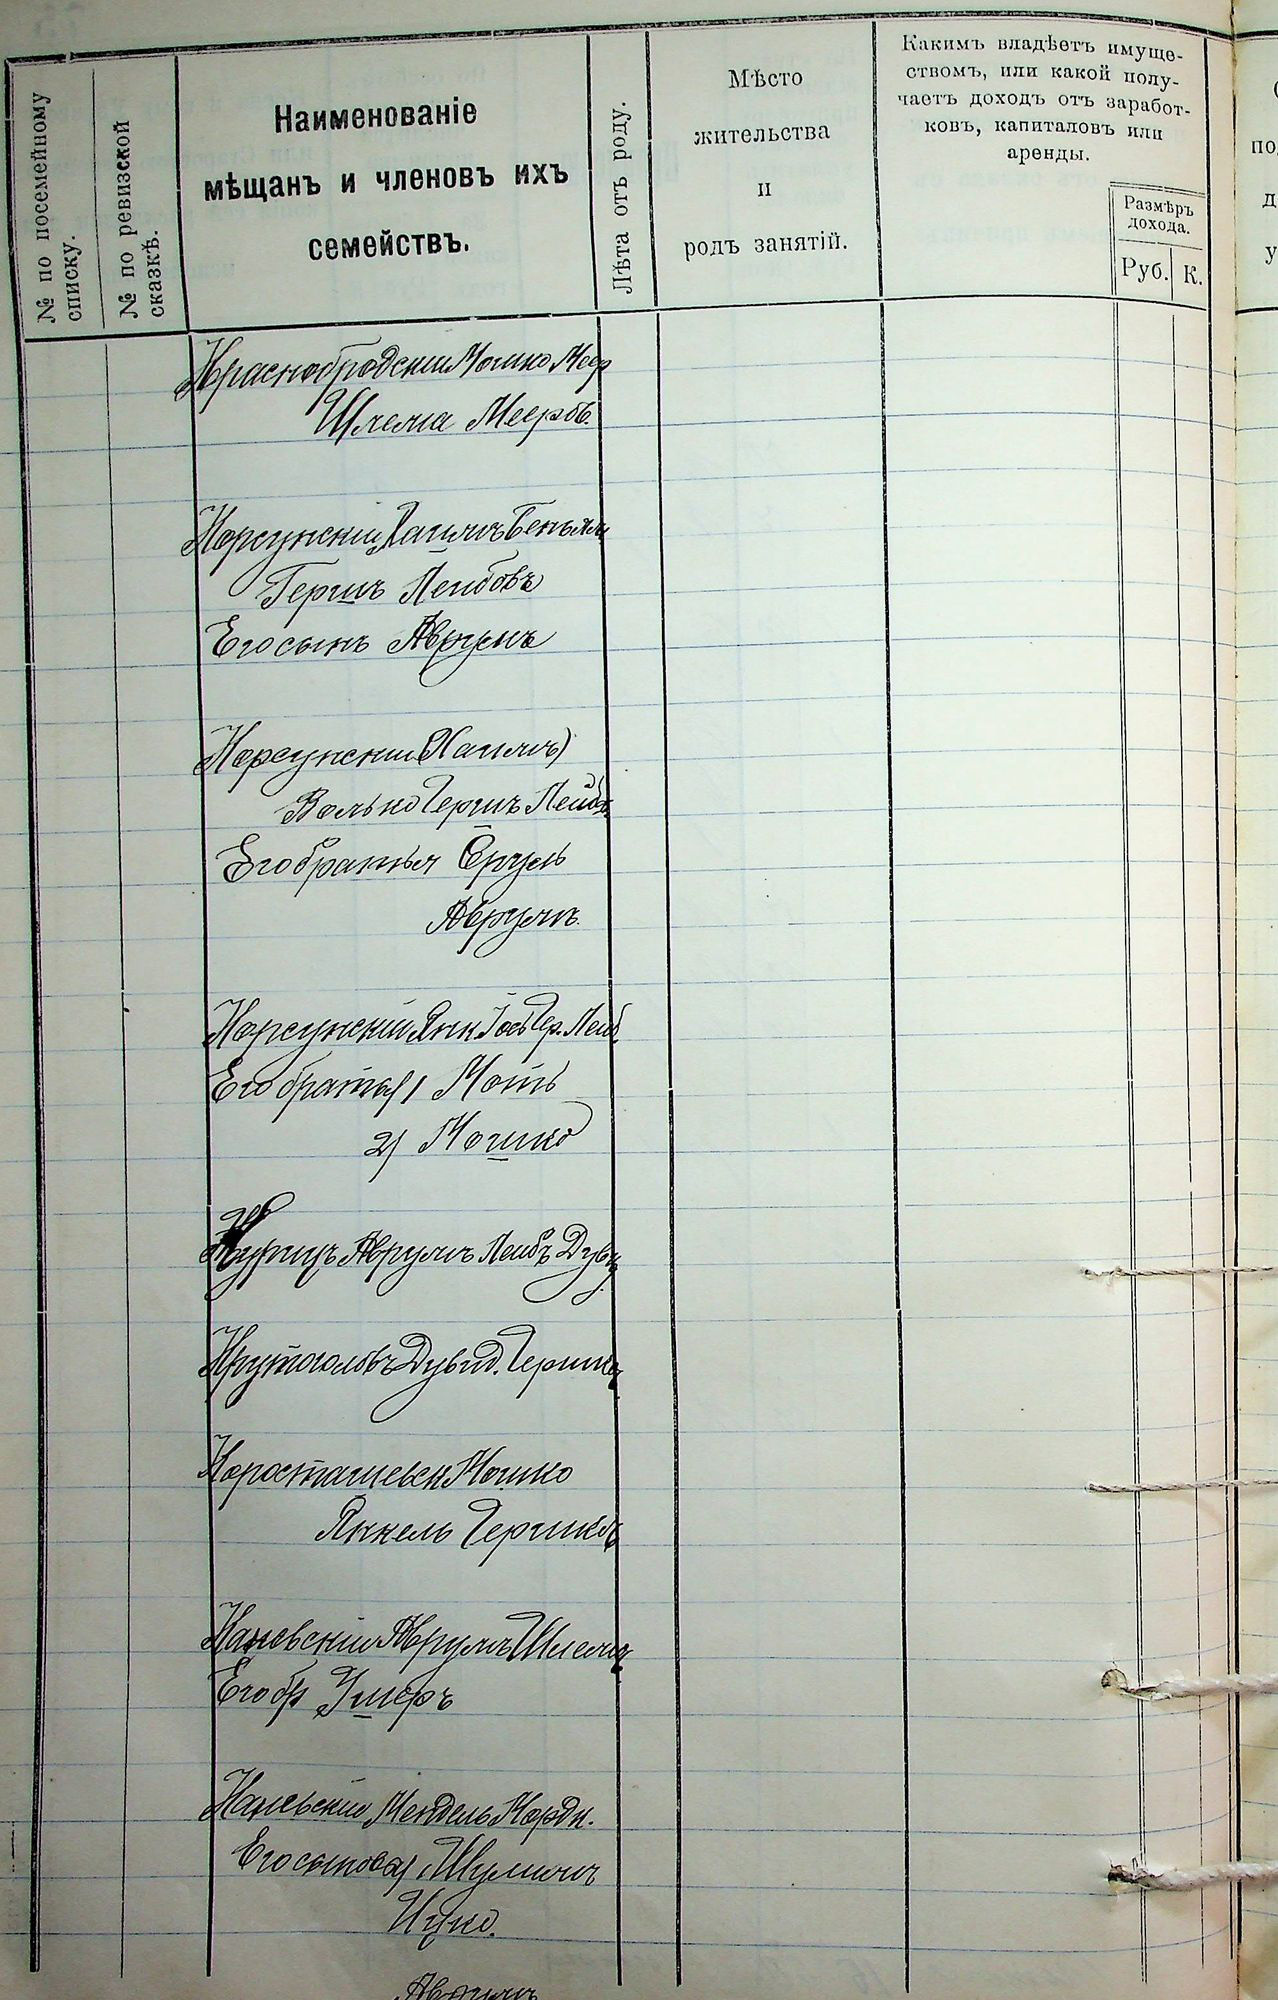 № по посемейному
списку.
№ по ревизской
сказкѣ.
Наименованіе
мѣщанъ и членовъ ихъ
семействъ.
Лѣта отъ роду.
Мѣсто
жительства
и
родъ занятій.
Какимъ владѣетъ имуще-
ствомъ, или какой полу-
чаетъ доходъ отъ заработ-
ковъ, капиталовъ или
аренды.
Размѣръ
дохода.
Руб.
К.
Краснобродскій Мошко Меер
Шлема Мееров.
Корсунскій Хаимъ Беньям
Гершъ Лейбовъ
Его сынъ Аврумъ
Корсунскій (Хаимъ)
Волько Гершъ Лейбов
Его братья Сруль
Аврумъ
Корсунскій Янк Іос Гер. Лейб.
Его братья 1) Моть
2) Мошко
Курицъ Аврумъ Лейбъ Дувид
Крутоголовъ Дувид. Гершк
Коростышевск Мошко
Янкель Гершков
Каневскій Аврумъ Шлема
Его бр Умеръ
Каневскій Мендель Мордк.
Его сыновья Шулимъ
Ицко.
Аврумъ